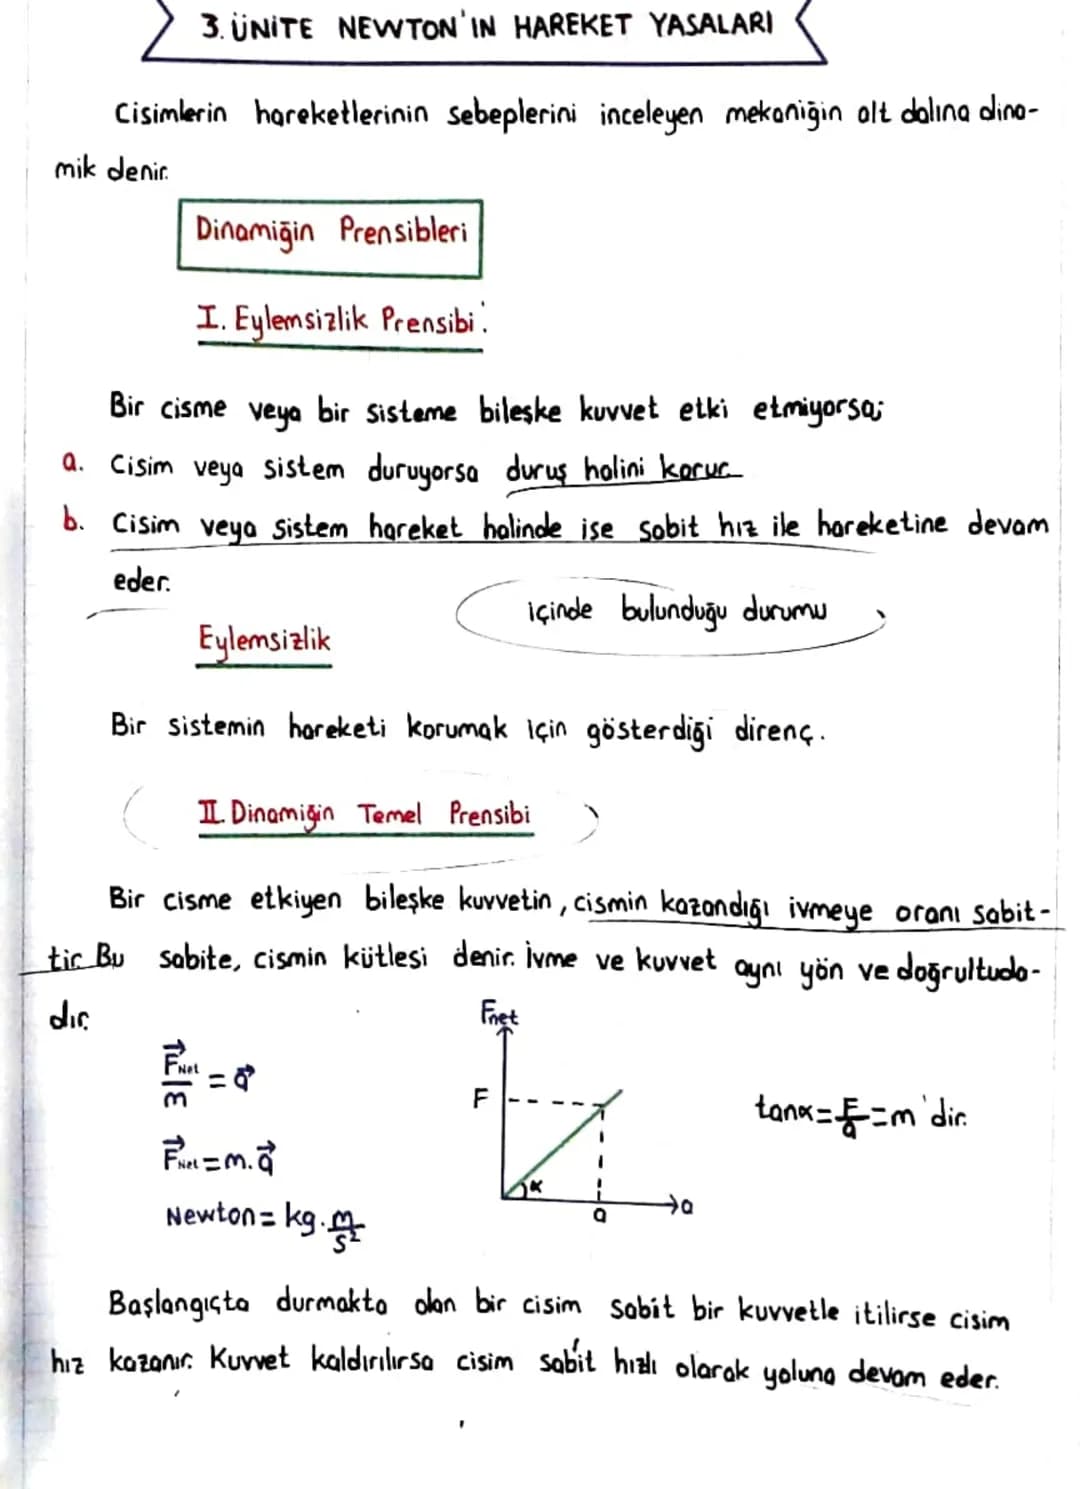 3. ÜNİTE NEWTON'IN HAREKET YASALARI
Cisimlerin hareketlerinin sebeplerini inceleyen mekaniğin alt dalına dina-
mik denir.
Dinamiğin Prensibleri
I. Eylemsizlik Prensibi:
Bir cisme veya bir sisteme bileşke kuvvet etki etmiyorsa;
a. Cisim veya sistem duruyorsa duruş halini korur
b. Cisim veya sistem hareket halinde ise sabit hız ile hareketine devam
eder.
içinde bulunduğu durumu
Eylemsizlik
Bir sistemin hareketi korumak için gösterdiği direnç.
II. Dinamiğin Temel Prensibi
Bir cisme etkiyen bileşke kuvvetin, cismin kazandığı ivmeye oranı sabit-
tir. Bu sabite, cismin kütlesi denir. İvme ve kuvvet aynı yön ve doğrultuda-
dır.
Fnet
F⃗Net/m = a⃗
F
tanα=F/a=m'dir.
F⃗Net=m.a⃗
α
a
a
Newton=kg.m/s²
Başlangıçta durmakta olan bir cisim sabit bir kuvvetle itilirse cisim
hız kazanır. Kuvvet kaldırılırsa cisim sabit hızlı olarak yoluna devam eder.